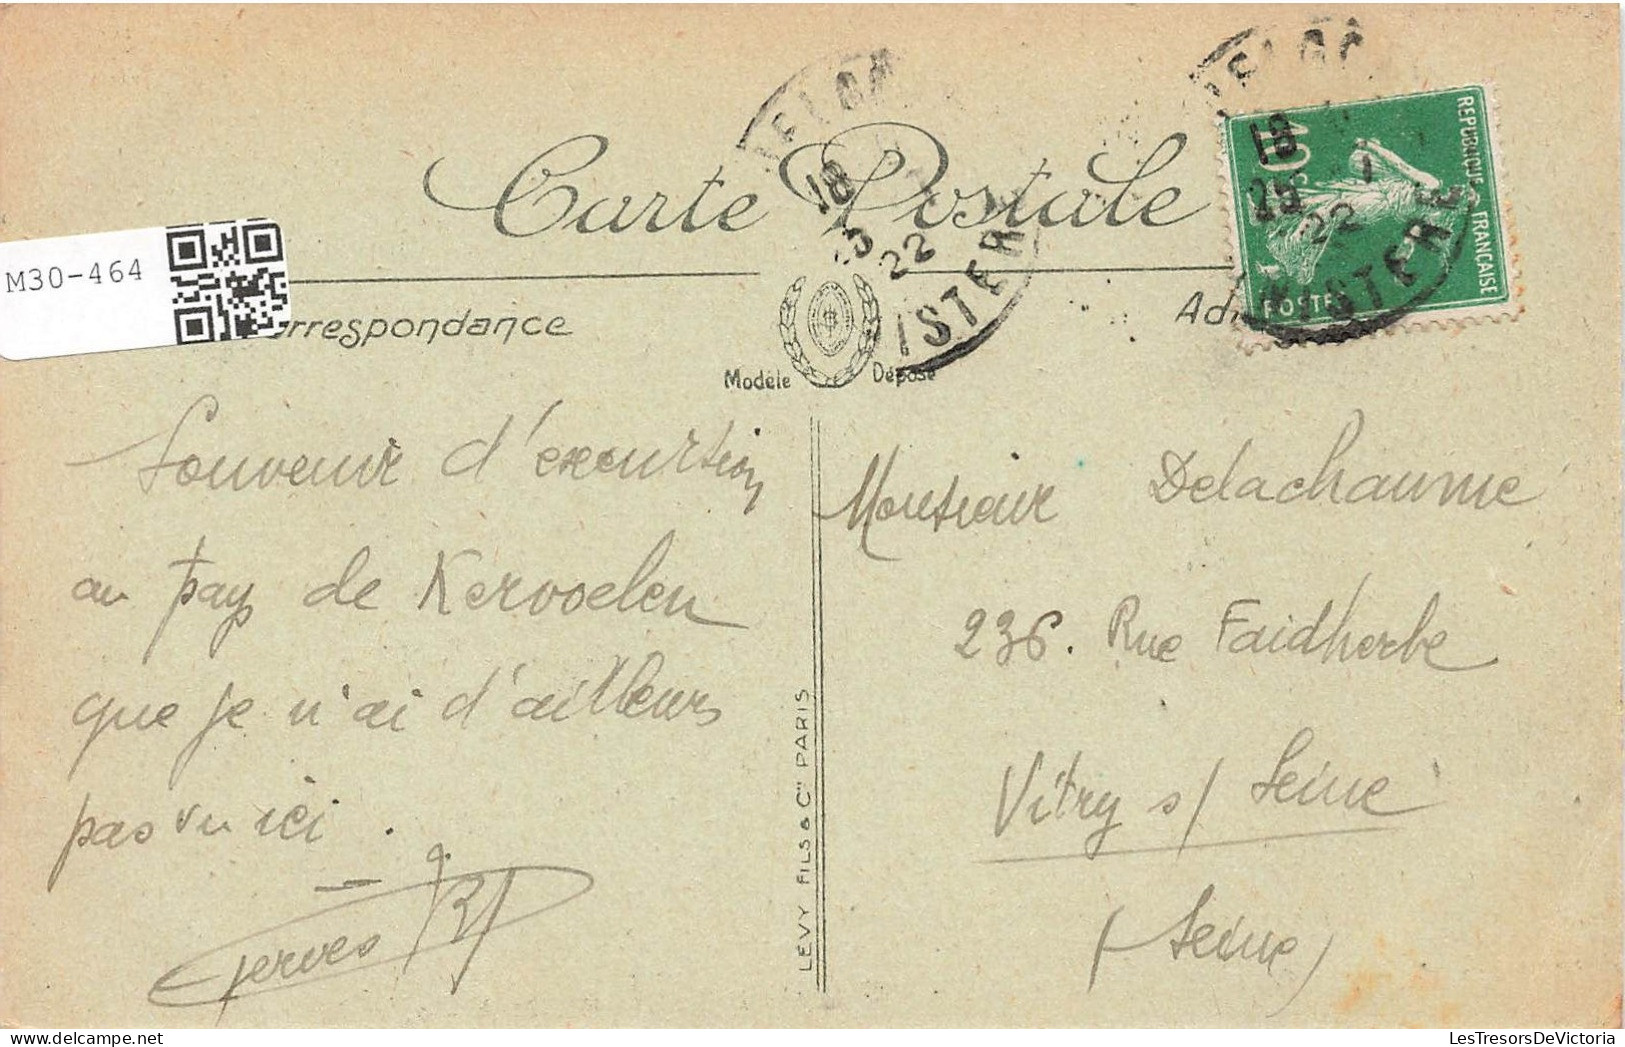 Carte Postale
M30-464
Correspondance
Modèle Déposé
18
22
ISTERE
REPUBLIQUE FRANÇAISE
10c
POSTES
18
25
22
ISTERE
Souvenir d'excurtion
au pays de Kervoelen
que je n'ai d'ailleurs
pas vu ici.
Gerves
LEVY FILS & Cie PARIS
Monsieur Delachaume
236. Rue Faidherbe
Vitry s/ Seine
(Seine)
LesTresorsDeVictoria